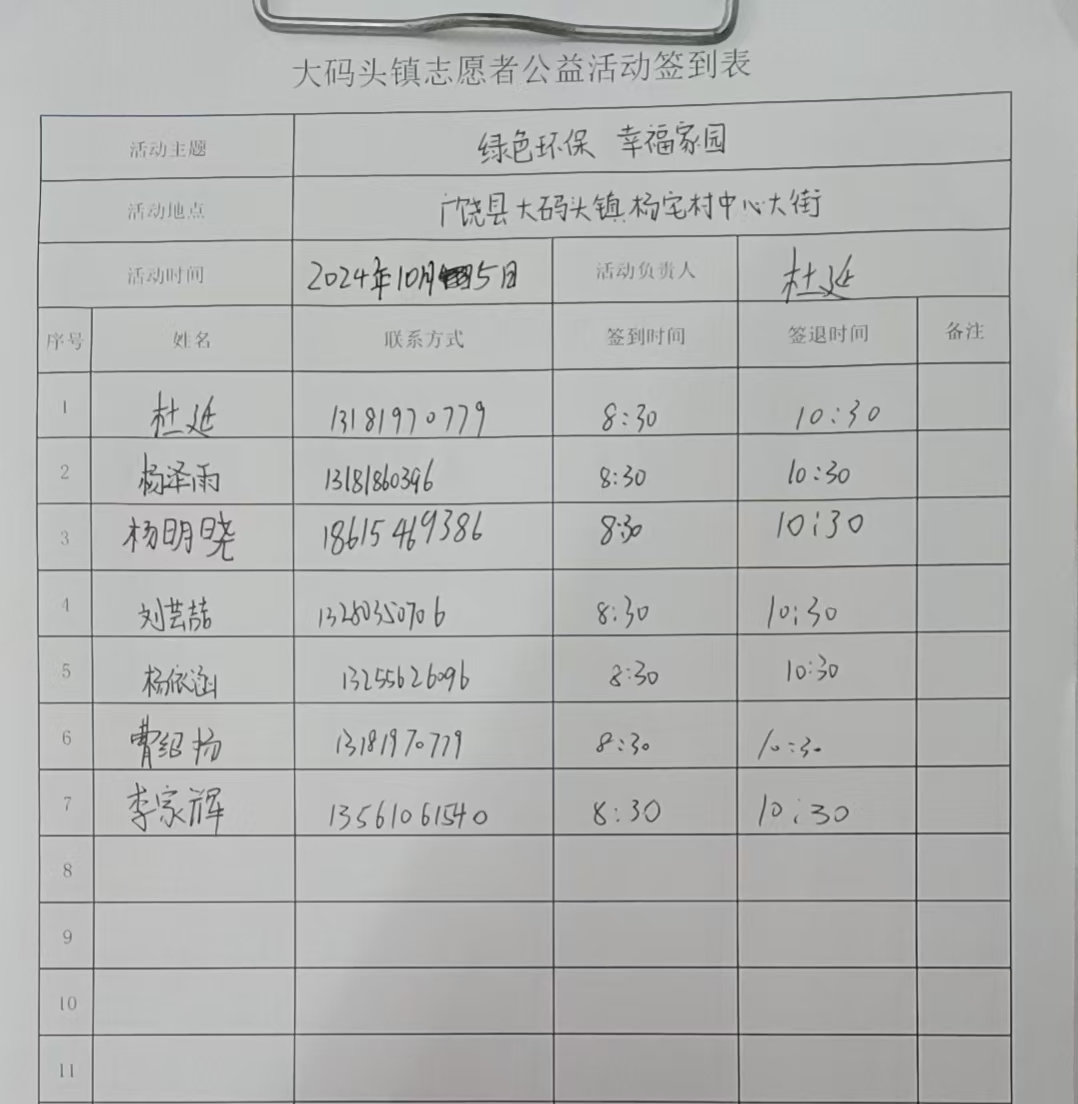 大码头镇志愿者公益活动签到表
活动主题 绿色环保 幸福家园
活动地点 广饶县大码头镇杨宅村中心大街
活动时间 2024年10月5日 活动负责人 杜延
序号 姓名 联系方式 签到时间 签退时间 备注
1 杜延 13181970779 8:30 10:30
2 杨泽雨 13181860396 8:30 10:30
3 杨明晓 18615469386 8:30 10:30
4 刘芸喆 13280350706 8:30 10:30
5 杨依涵 13255626096 8:30 10:30
6 曹绍扬 13181970779 8:30 10:30
7 李家辉 13561061540 8:30 10:30
8
9
10
11